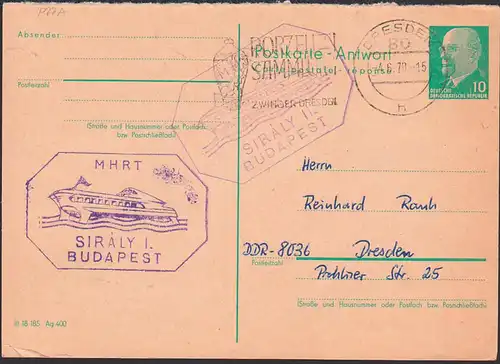 P77A
Absender
Postleitzahl
(Straße und Hausnummer oder Postfach
bzw. Postschließfach)
PORZELLAN
SAMMLUNG
ZWINGER DRESDEN
SIRÁLY II.
BUDAPEST
Postkarte - Antwort
Carte postale - réponse
DRESDEN
80
-4.6.70.-15
h
10
DEUTSCHE
DEMOKRATISCHE REPUBLIK
MHRT
SIRÁLY I.
BUDAPEST
Herrn
Reinhard Rauh
DDR-8036 Dresden
Postleitzahl
Prohliser Str. 25
(Straße und Hausnummer oder Postfach bzw. Postschließfach)
III 18 185 Ag 400